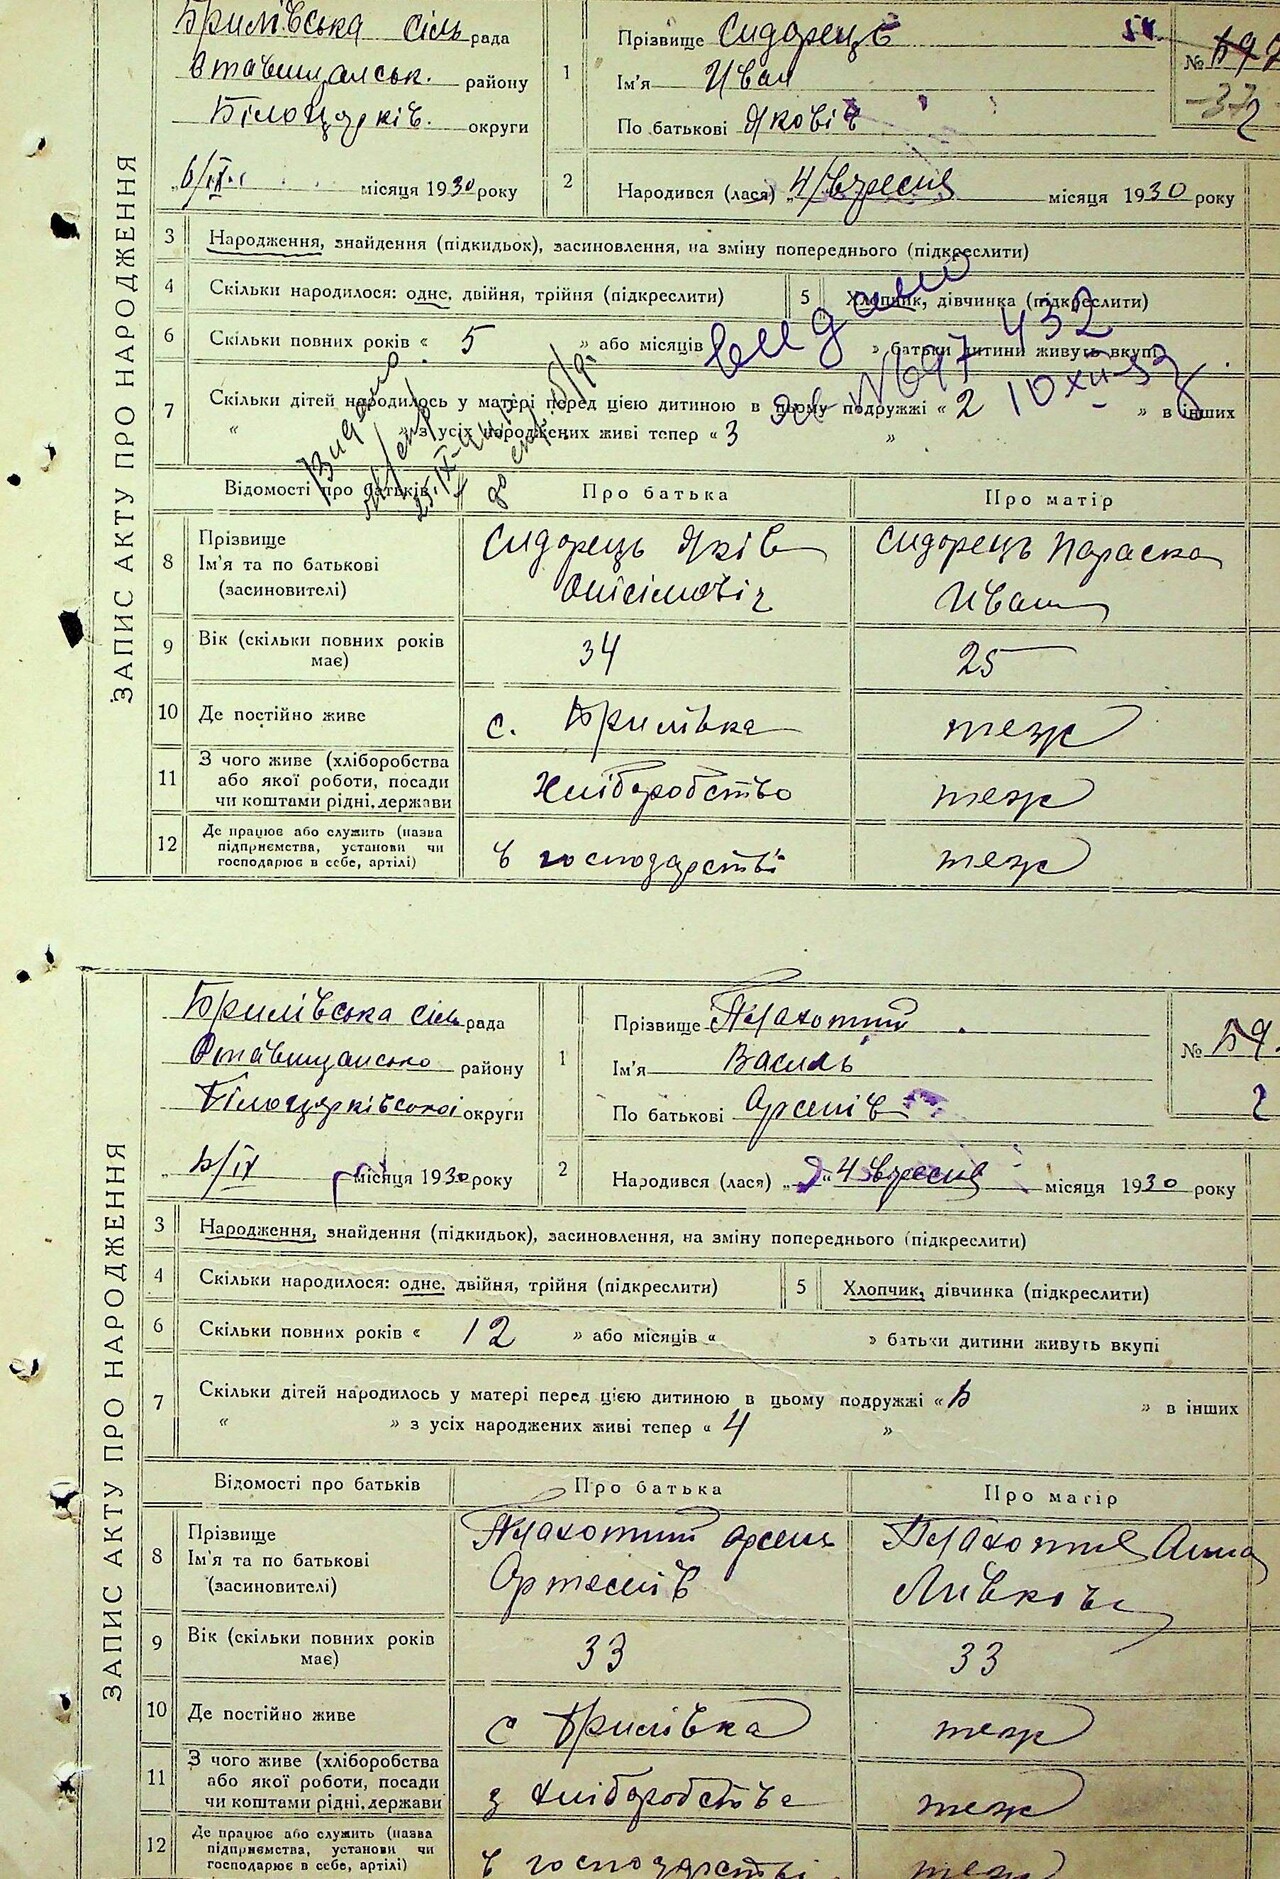 ЗАПИС АКТУ ПРО НАРОДЖЕННЯ
Бримівська сіль рада
Ставищанськ. району
Білоцерків. округи
„6/IX. місяця 1930 року
1
Прізвище Сидорець
Ім'я Иван
По батькові Яковів
№
2
Народився (лася) „4/вересня місяця 1930 року
3 Народження, знайдення (підкидьок), засиновлення, на зміну попереднього (підкреслити)
4 Скільки народилося: одне, двійня, трійня (підкреслити)
5 Хлопчик, дівчинка (підкреслити)
6 Скільки повних років « 5 » або місяців » батьки дитини живуть вкупі
7 Скільки дітей народилось у матері перед цією дитиною в цьому подружжі « 2 » в інших
« » з усіх народжених живі тепер « 3 »
видано
432
10 XII-
Видано
Відомості про батьків Про батька Про матір
8 Прізвище
Ім'я та по батькові
(засиновителі)
Сидорець Яків
Онісімовіч
Сидорець Параска
Иван
9 Вік (скільки повних років має) 34 25
10 Де постійно живе с. Бримівка теж
11 З чого живе (хліборобства
або якої роботи, посади
чи коштами рідні, держави
Хліборобство теж
12 Де працює або служить (назва
підприємства, установи чи
господарює в себе, артілі)
в господарстві теж
ЗАПИС АКТУ ПРО НАРОДЖЕННЯ
Бримівська сіль рада
Ставищансько району
Білоцерківської округи
„ 5/IX місяця 1930 року
1
Прізвище Плахотний
Ім'я Василь
По батькові Арсенів
№
2
Народився (лася) „ “ 4 вересня місяця 1930 року
3 Народження, знайдення (підкидьок), засиновлення, на зміну попереднього (підкреслити)
4 Скільки народилося: одне, двійня, трійня (підкреслити)
5 Хлопчик, дівчинка (підкреслити)
6 Скільки повних років « 12 » або місяців « » батьки дитини живуть вкупі
7 Скільки дітей народилось у матері перед цією дитиною в цьому подружжі « 5 » в інших
« » з усіх народжених живі тепер « 4 »
Відомості про батьків Про батька Про матір
8 Прізвище
Ім'я та по батькові
(засиновителі)
Плахотний Арсень
Артемів
Плахотня Анна
Ливков
9 Вік (скільки повних років має) 33 33
10 Де постійно живе с Бримівка теж
11 З чого живе (хліборобства
або якої роботи, посади
чи коштами рідні, держави
з хліборобства теж
12 Де працює або служить (назва
підприємства, установи чи
господарює в себе, артілі)
в господарстві теж